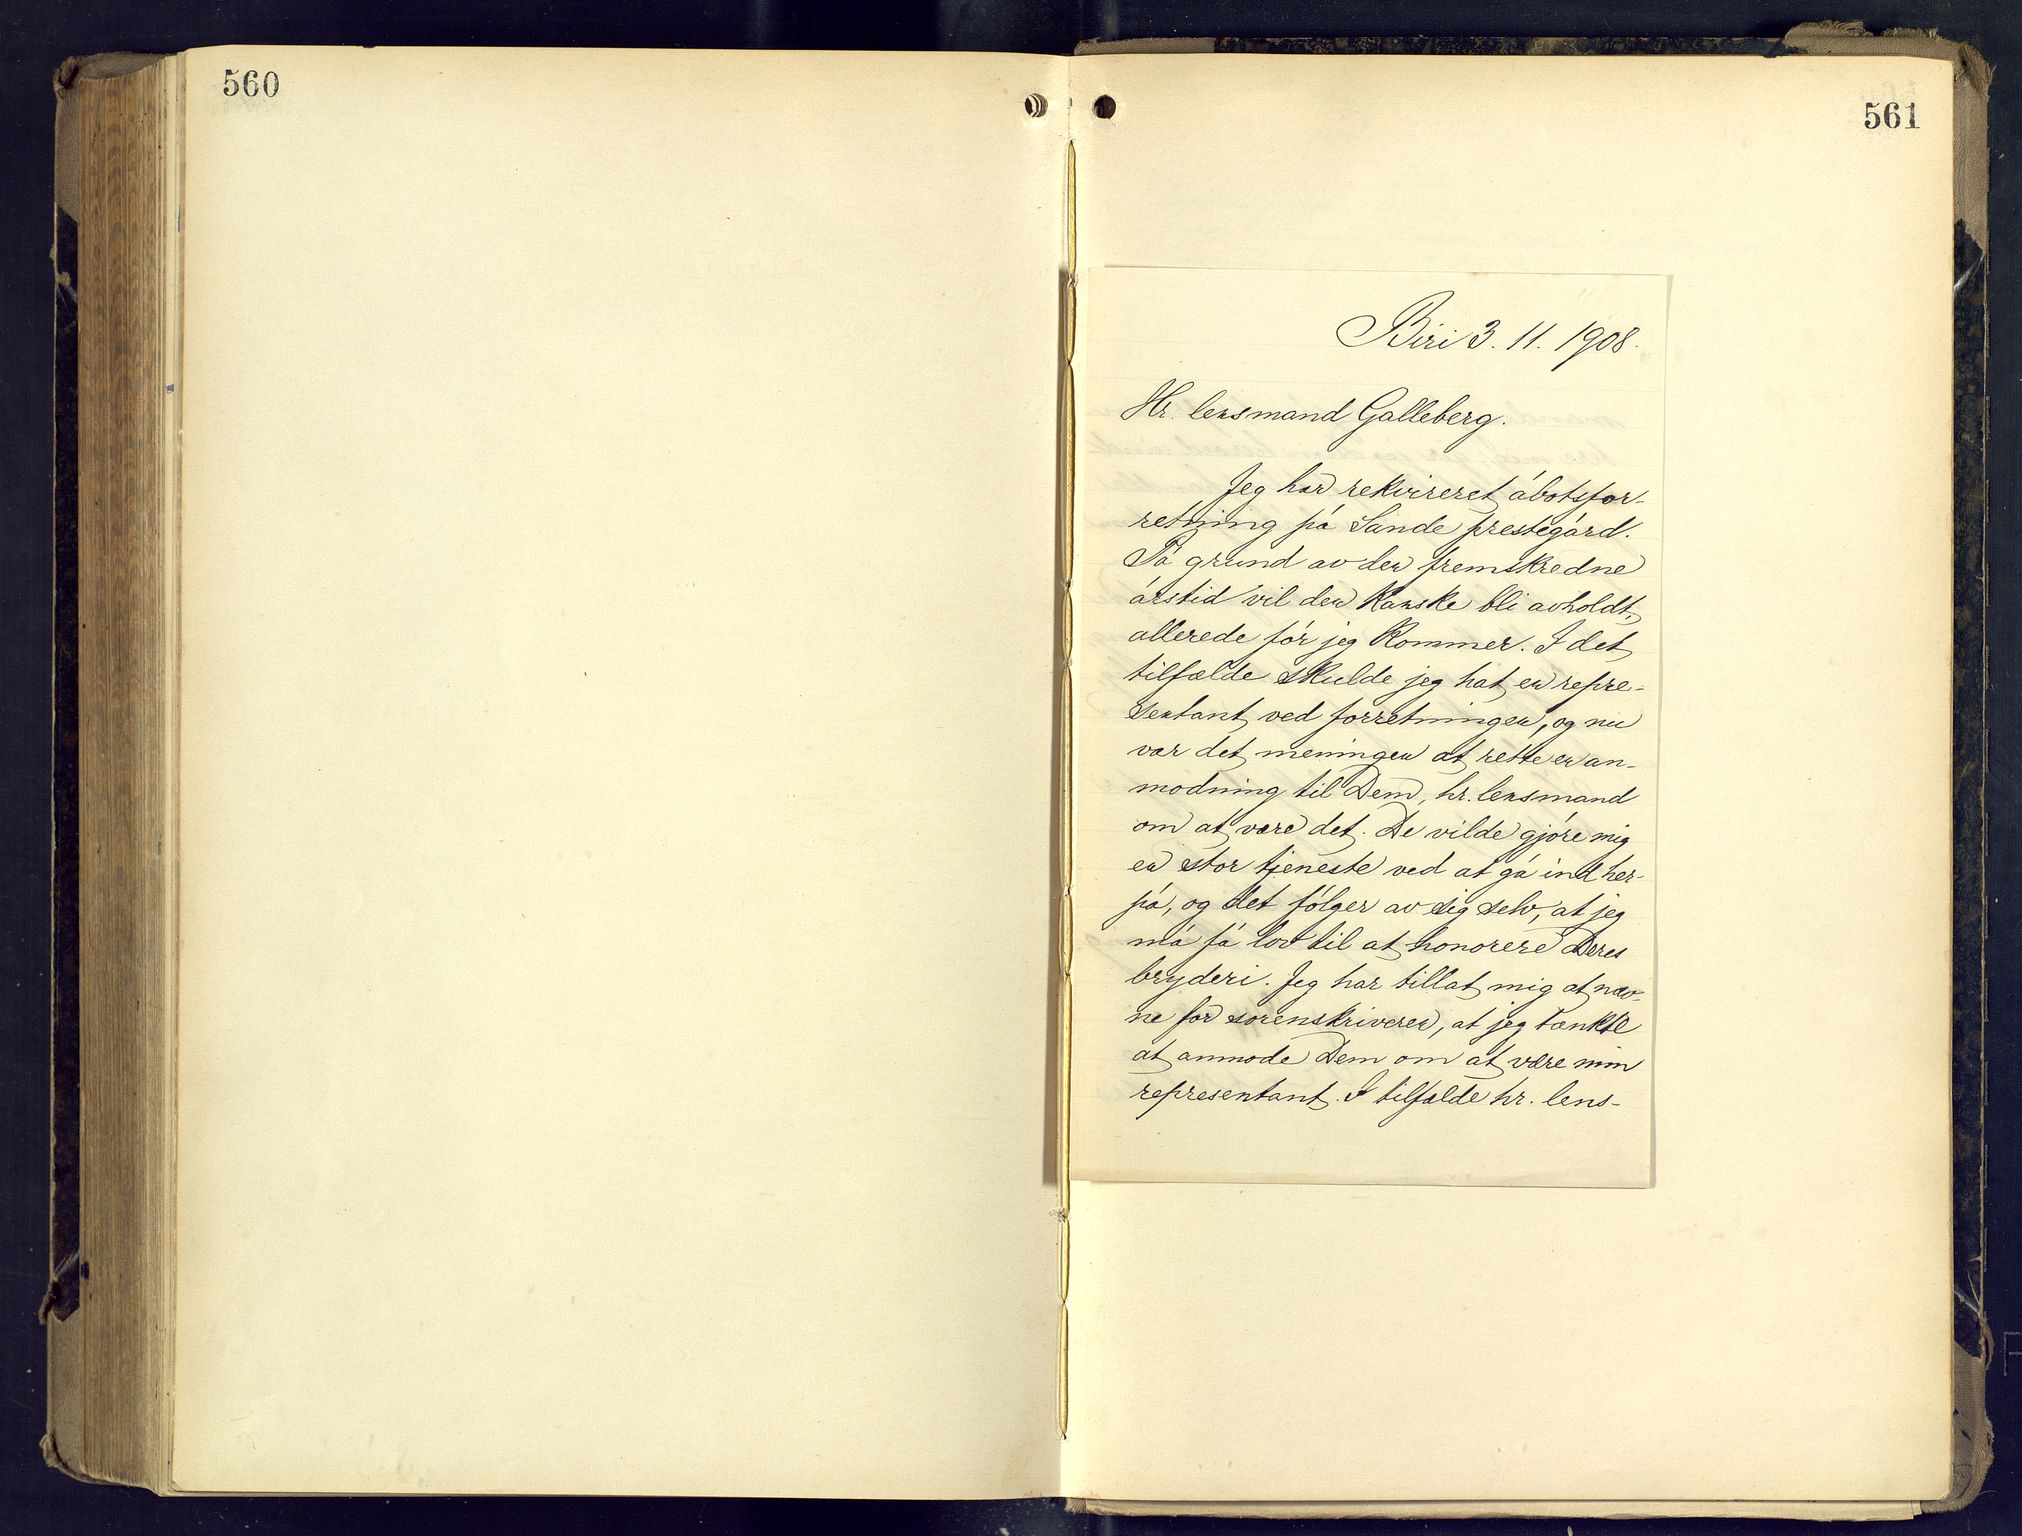 560
561
Biri 3. 11. 1908.
Hr. lensmand Galleberg.
Jeg har rekvireret åbotsfor-
retning på Sande prestegård.
På grund av den fremskredne
årstid vil den kanske bli avholdt,
allerede før jeg kommer. I det
tilfælde skulde jeg hat en repre-
sentant ved forretningen, og nu
var det meningen at rette en an-
modning til Dem, hr. lensmand
om at være det. De vilde gjøre mig
en stor tjeneste ved at gå ind her-
på, og det følger av sig selv, at jeg
må få lov til at honorere Deres
bryderi. Jeg har tillat mig at næv-
ne for sorenskriveren, at jeg tænkte
at anmode Dem om at være min
representant. I tilfælde hr. lens-